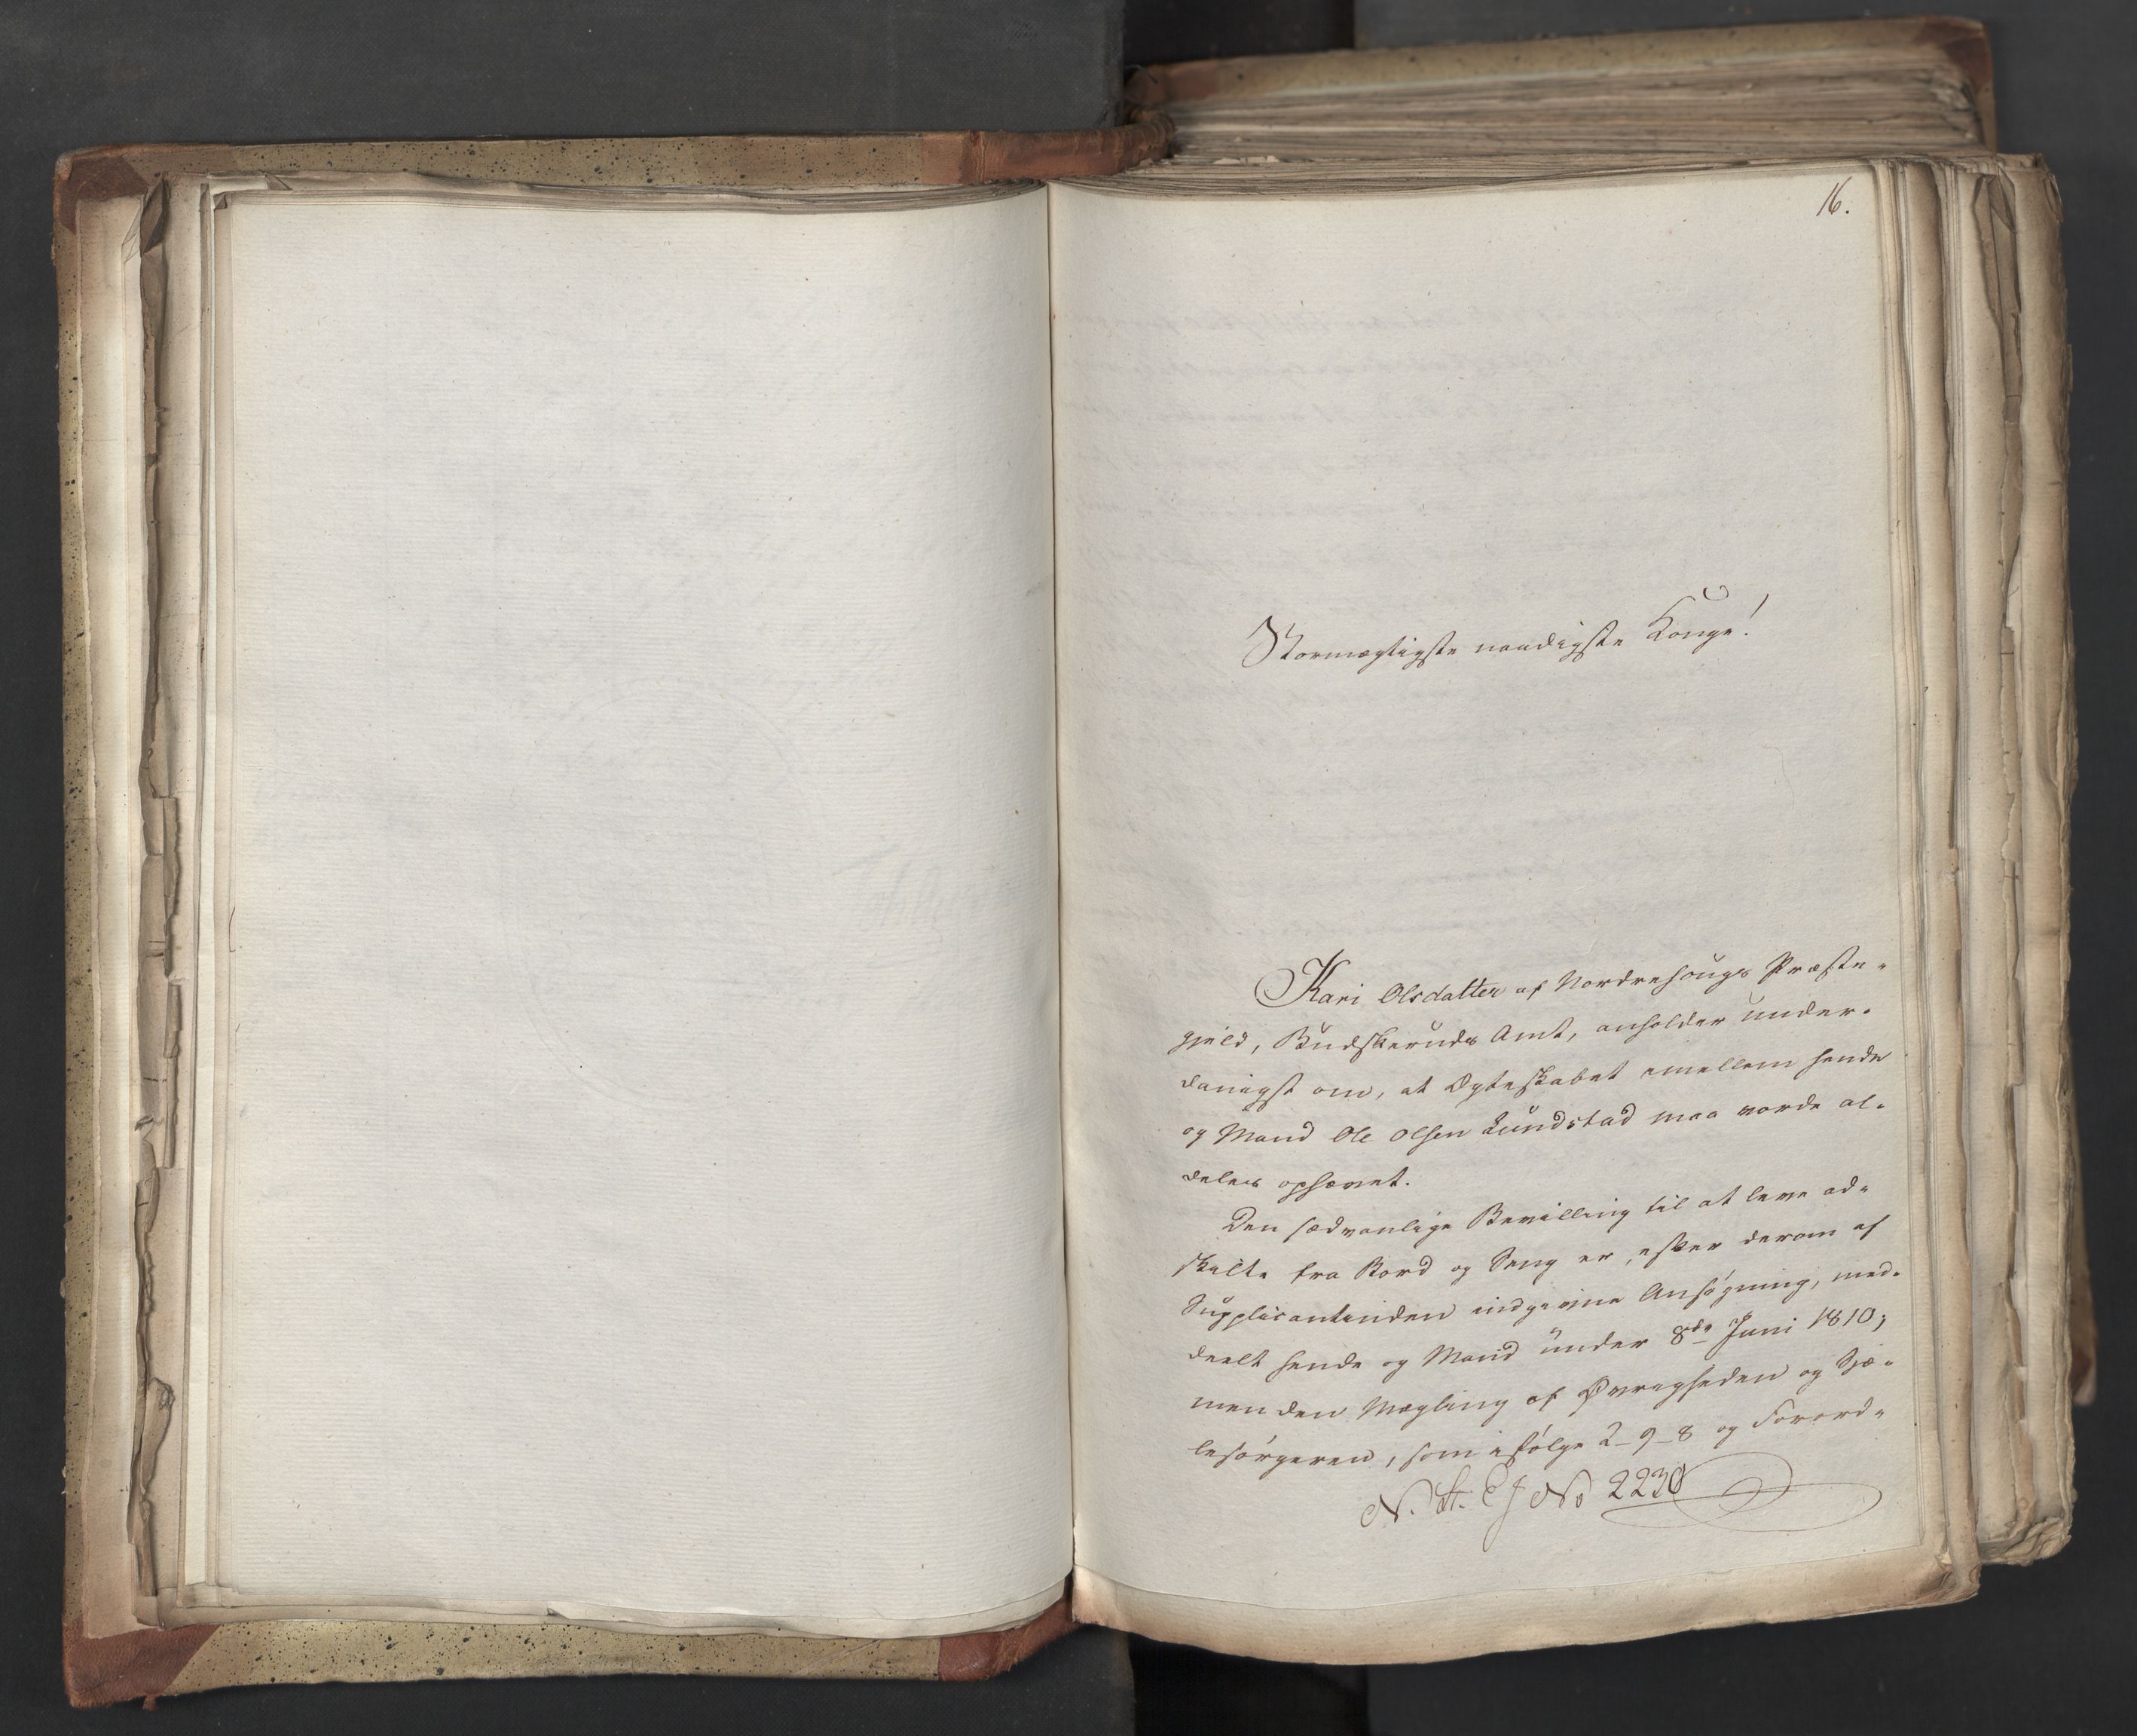 16.
Stormægtigste naadigste Konge!
Kari Olsdatter af Nordrehougs Præste-
gjeld, Budskeruds Amt, anholder under-
danigst om, at Ægteskabet emellem hende
og Mand Ole Olsen Lundstad maa vorde al-
deles ophævet.
Den sædvanlige Bevilling til at leve ad-
skilte fra Bord og Seng er, efter derom af
Supplicantinden indgivne Ansøgning, med-
deelt hende og Mand under 8de Juni 1810;
men den Mægling af Øvrigheden og Sjæ-
lesørgeren, som ifølge 2-9-8 og Forord-
N. St. E J No 2230